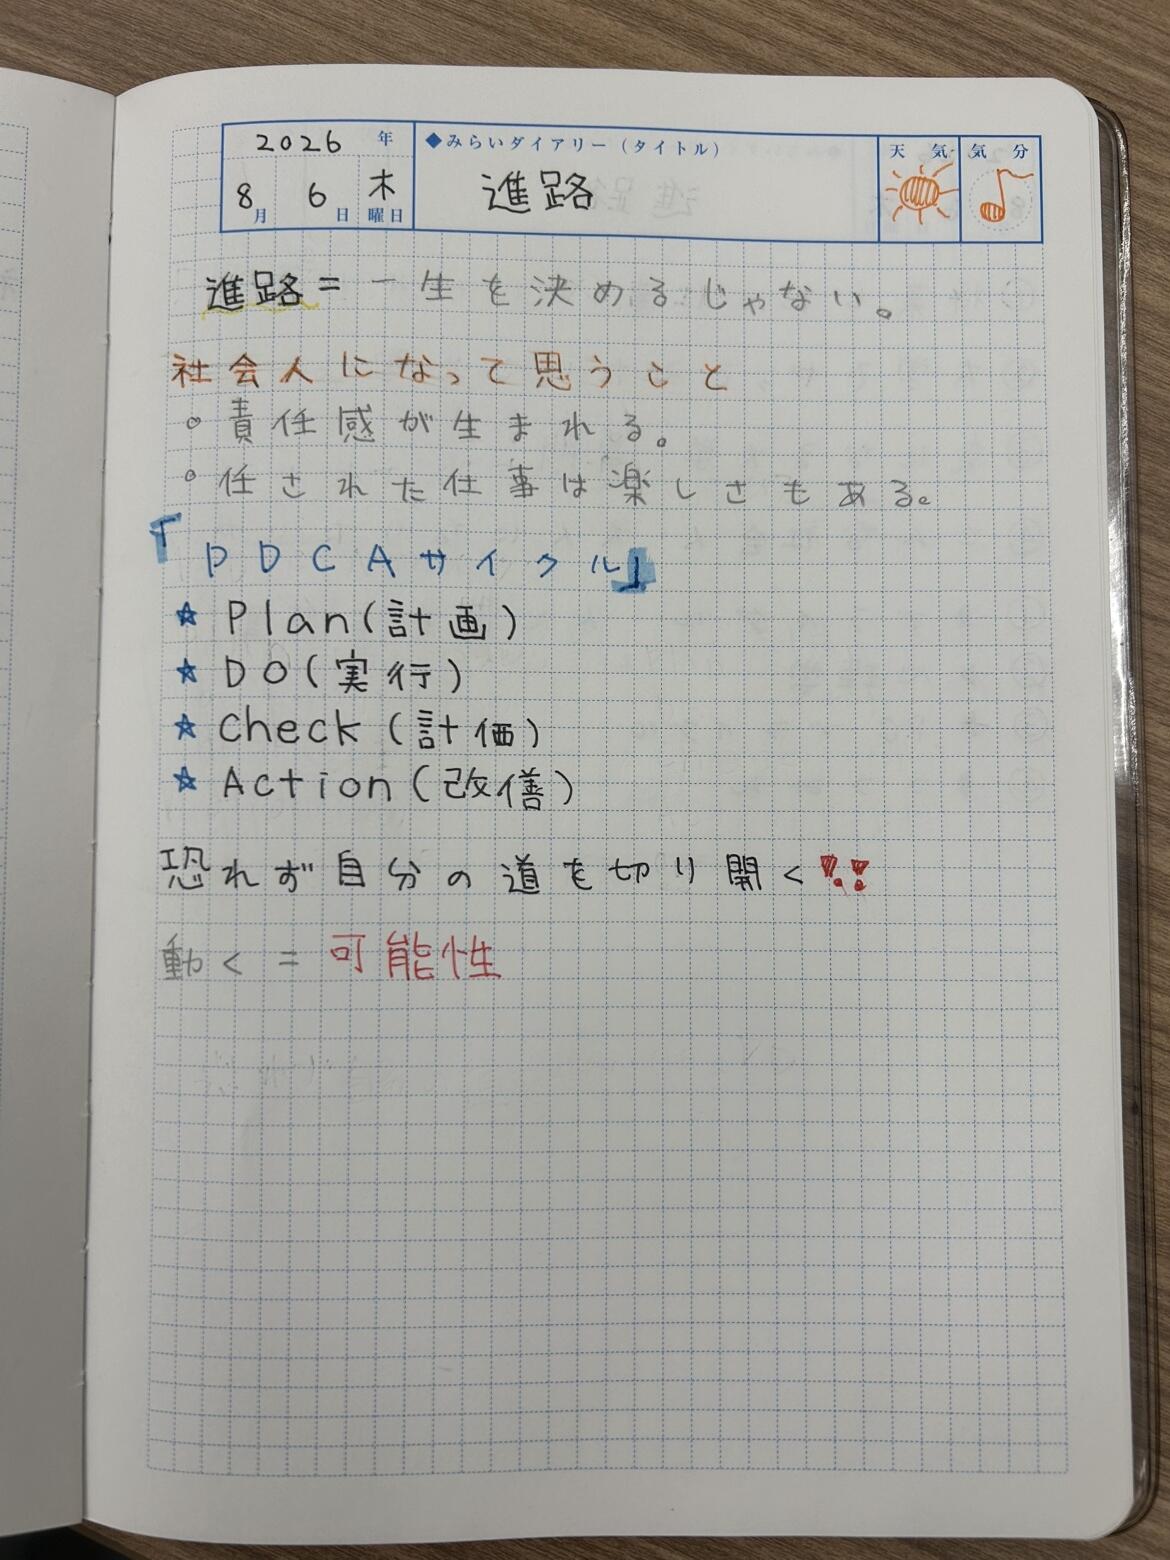 2026 年
8月 6日 木曜日
◆みらいダイアリー(タイトル)
進路
天気
気分
進路=一生を決めるじゃない。
社会人になって思うこと
○責任感が生まれる。
○任された仕事は楽しさもある。
「PDCAサイクル」
☆Plan(計画)
☆DO(実行)
☆Check(計価)
☆Action(改善)
恐れず自分の道を切り開く!!
動く=可能性